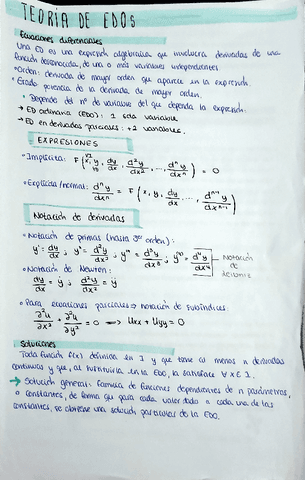 TEORÍA DE EDOs
Ecuaciones diferenciales
Una ED es una expresión algebraica que involucra derivadas de una
función desconocida, de una o más variables independientes.
•Orden: derivada de mayor orden que aparece en la expresión.
•Grado: potencia de la derivada de mayor orden.
• Depende del nº de variable del que dependa la expresión.
→ ED ordinaria (EDO): 1 sola variable
→ ED en derivadas parciales: +2 variables.
EXPRESIONES
•Implícita: F (x, y, dy/dx, d²y/dx², ..., dⁿy/dxⁿ) = 0
•Explícita/normal: dⁿy/dxⁿ = F (x, y, dy/dx, ..., dⁿ⁻¹y/dxⁿ⁻¹)
Notación de derivadas
•Notación de primas (hasta 3er orden):
y' = dy/dx ; y'' = d²y/dx² ; y''' = d³y/dx³ ; y⁽⁴⁾ = d⁴y/dx⁴ Notación de Leibniz
•Notación de Newton:
dy/dx = ẏ ; d²y/dx² = ÿ
•Para ecuaciones parciales → notación de subíndices:
∂²u/∂x² + ∂²u/∂y² = 0 → Uxx + Uyy = 0
Soluciones
Toda función f(x) definida en I y que tiene al menos n derivadas
continuas y que, al sustituirla en la EDO, la satisface ∀ x ∈ I.
→ Solución general: Familia de funciones dependientes de n parámetros,
o constantes, de forma que para cada valor dado a cada una de las
constantes, se obtiene una solución particular de la EDO.